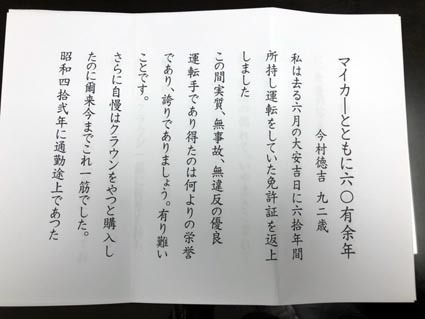 マイカーとともに六〇有余年
今村徳吉 九二歳
私は去る六月の大安吉日に六拾年間
所持し運転をしていた免許証を返上
しました
この間実質、無事故、無違反の優良
運転手であり得たのは何よりの栄誉
であり、誇りでありましょう。有り難い
ことです。
さらに自慢はクラウンをやつと購入し
たのに爾来今までこれ一筋でした。
昭和四拾弐年に通勤途上であつた